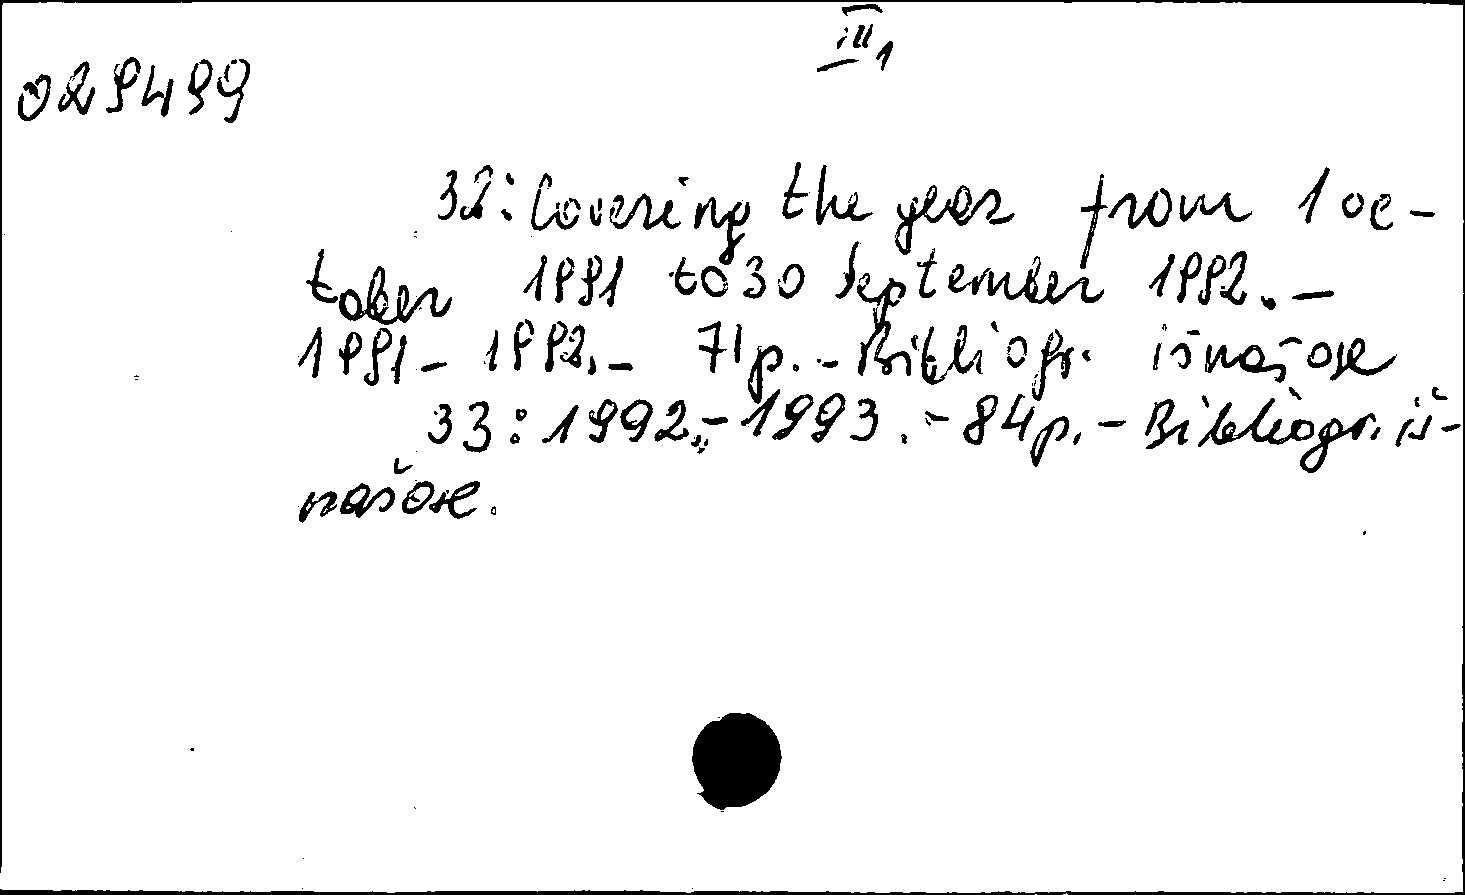 III1
029499
32: Covering the year from 1 oc-
tober 1991 to 30 September 1992. –
1991 – 1992. – 71 p. – Bibliogr. išnašose
33: 1992. – 1993. – 84 p. – Bibliogr. iš-
našose.